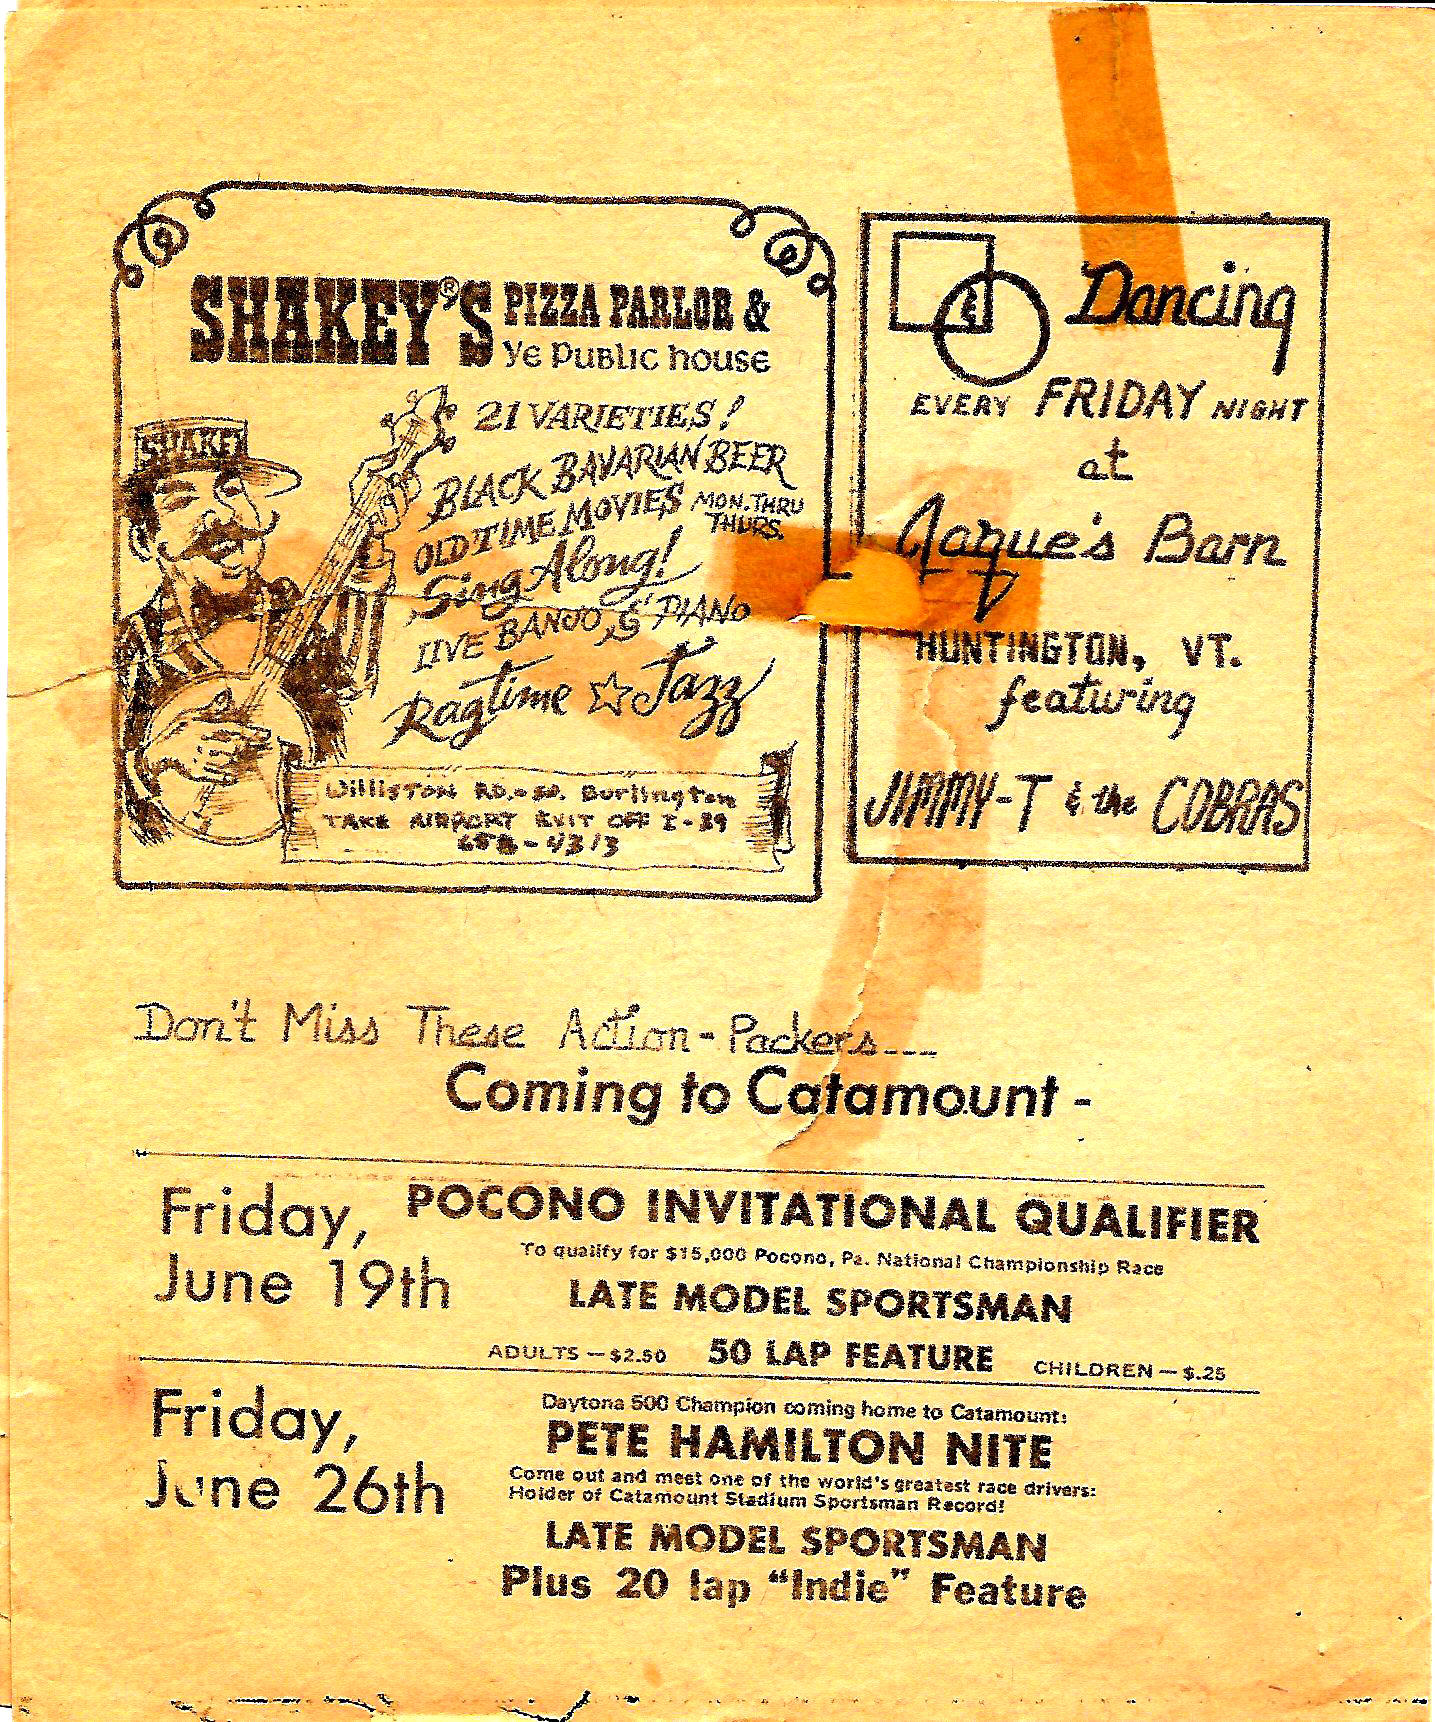 SHAKEY'S® PIZZA PARLOR &
Ye PUBLIC house
SHAKEY
21 VARIETIES!
BLACK BAVARIAN BEER
OLD TIME MOVIES MON. THRU
THURS.
Sing Along!
LIVE BANJO & PIANO
Ragtime ☆ Jazz
Williston Rd. - So. Burlington
TAKE AIRPORT EXIT OFF I-89
&
Dancing
EVERY FRIDAY NIGHT
at
Jaque's Barn
HUNTINGTON, VT.
featuring
JIMMY-T & the COBRAS
Don't Miss These Action-Packers---
Coming to Catamount -
Friday,
June 19th
POCONO INVITATIONAL QUALIFIER
To qualify for $15,000 Pocono, Pa. National Championship Race
LATE MODEL SPORTSMAN
ADULTS — $2.50 50 LAP FEATURE CHILDREN — $.25
Friday,
June 26th
Daytona 500 Champion coming home to Catamount:
PETE HAMILTON NITE
Come out and meet one of the world's greatest race drivers:
Holder of Catamount Stadium Sportsman Record!
LATE MODEL SPORTSMAN
Plus 20 lap "Indie" Feature